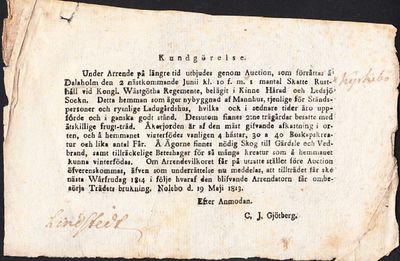 Kundgörelse.
Under Arrende på längre tid utbjudes genom Auction, som förrättas å
Dalaholm den 2 nästkommande Junii kl. 10 f. m. 1 mantal Skatte Rust-
håll vid Kongl. Wästgötha Regemente, beläget i Kinne Härad och Ledsjö
Sockn. Detta hemman som äger nybyggnad af Mannhus, tjenlige för Stånds-
personer och rymlige Ladugårdshus, hvilka och i sednare tider äro upp-
förde och i ganska godt stånd. Dessutom finnas 2:ne trägårdar besatte med
åtskillige frugt-träd. Åkerjorden är af den mäst gifvande afkastning i or-
ten, och å hemmanet vinterfödes vanligen 4 hästar, 30 a 40 Boskapskrea-
tur och lika antal Får. Å Ägorne finnes nödig Skog till Gärdsle och Ved-
brand, samt tillräckelige Beteshagar för så många kreatur som å hemmanet
kunna vinterfödas. Om Arrendevilkoret får på utsatte stället före Auction
öfverenskommas, äfven som underrättelse nu meddelas, att tillträdet får ske
nästa Wårfrudag 1814 i följe hvaraf den blifvande Arrendatorn får ombe-
sörja Trädets brukning, Nolebo d. 19 Maji 1813.
Efter Anmodan.
C. J. Gjötberg.
Lindstedt